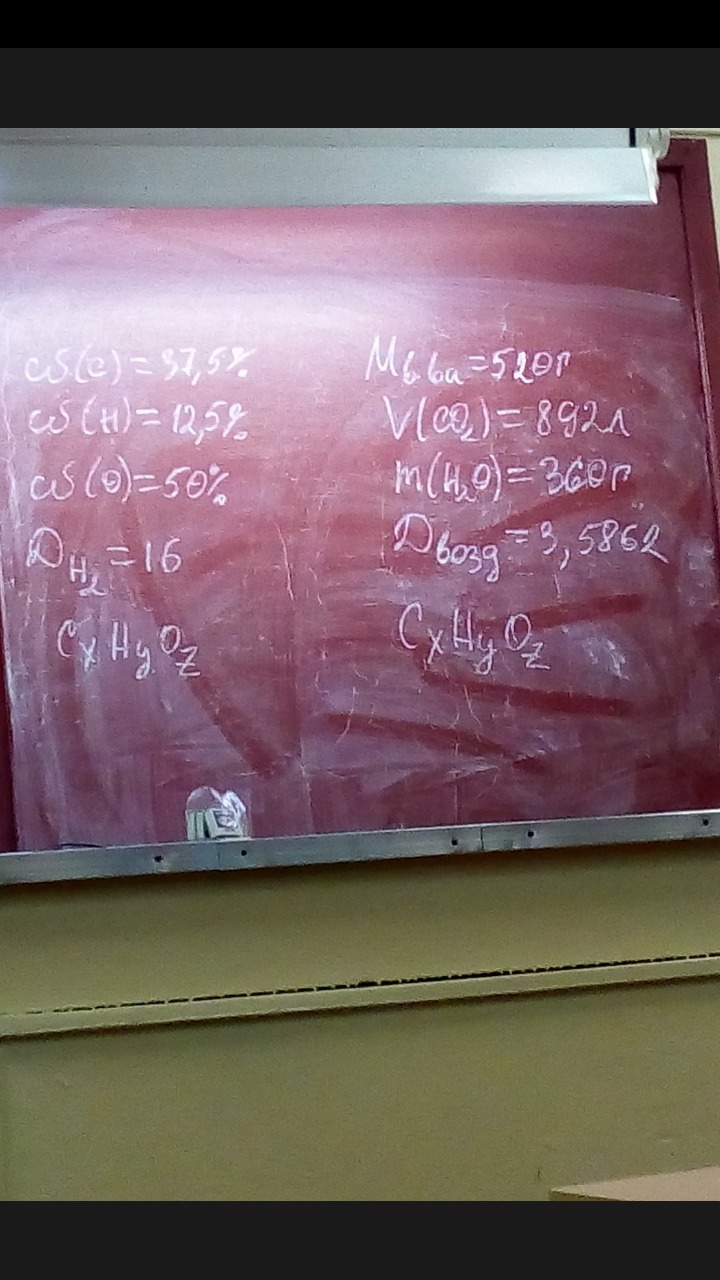 ω(C)=37,5%
ω(H)=12,5%
ω(O)=50%
D H₂=16
CₓHyOz
Mв.ва=520г
V(CO₂)=892л
m(H₂O)=360г
Dвозд=3,5862
CₓHyOz